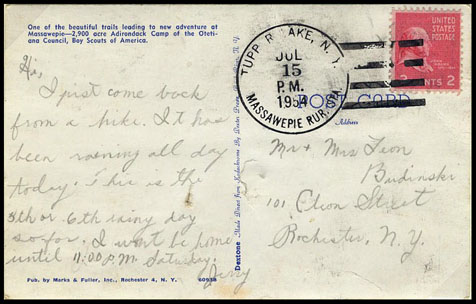 One of the beautiful trails leading to new adventure at
Massawepie—2,900 acre Adirondack Camp of the Oteti-
ana Council, Boy Scouts of America.
Hi,
I just come back
from a hike. It has
been raining all day
today. This is the
5th or 6th rainy day
so far. I won't be home
until 11:00 P.M. Saturday.
Jerry
Pub. by Marks & Fuller, Inc., Rochester 4, N. Y.
60938
Dextone
TUPPER LAKE, N.Y.
JUL
15
P.M.
1954
MASSAWEPIE RUR. STA.
UNITED
STATES
POSTAGE
2 CENTS 2
POST CARD
Address
Mr & Mrs Leon
Budinski
101
Street
Rochester, N. Y.